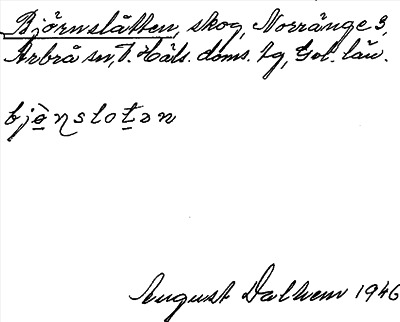 Björnslåtten, skog, Norränge 3,
Arbrå sn, V. Häls. doms. tg, Gvl. län.
bjö̀nslotən
August Dalhem 1946